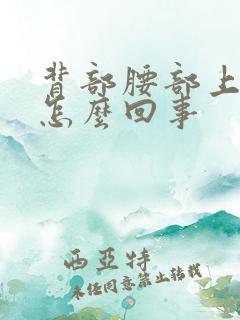 背部腰部上
怎麼回事
西亞特
未經同意禁止轉載